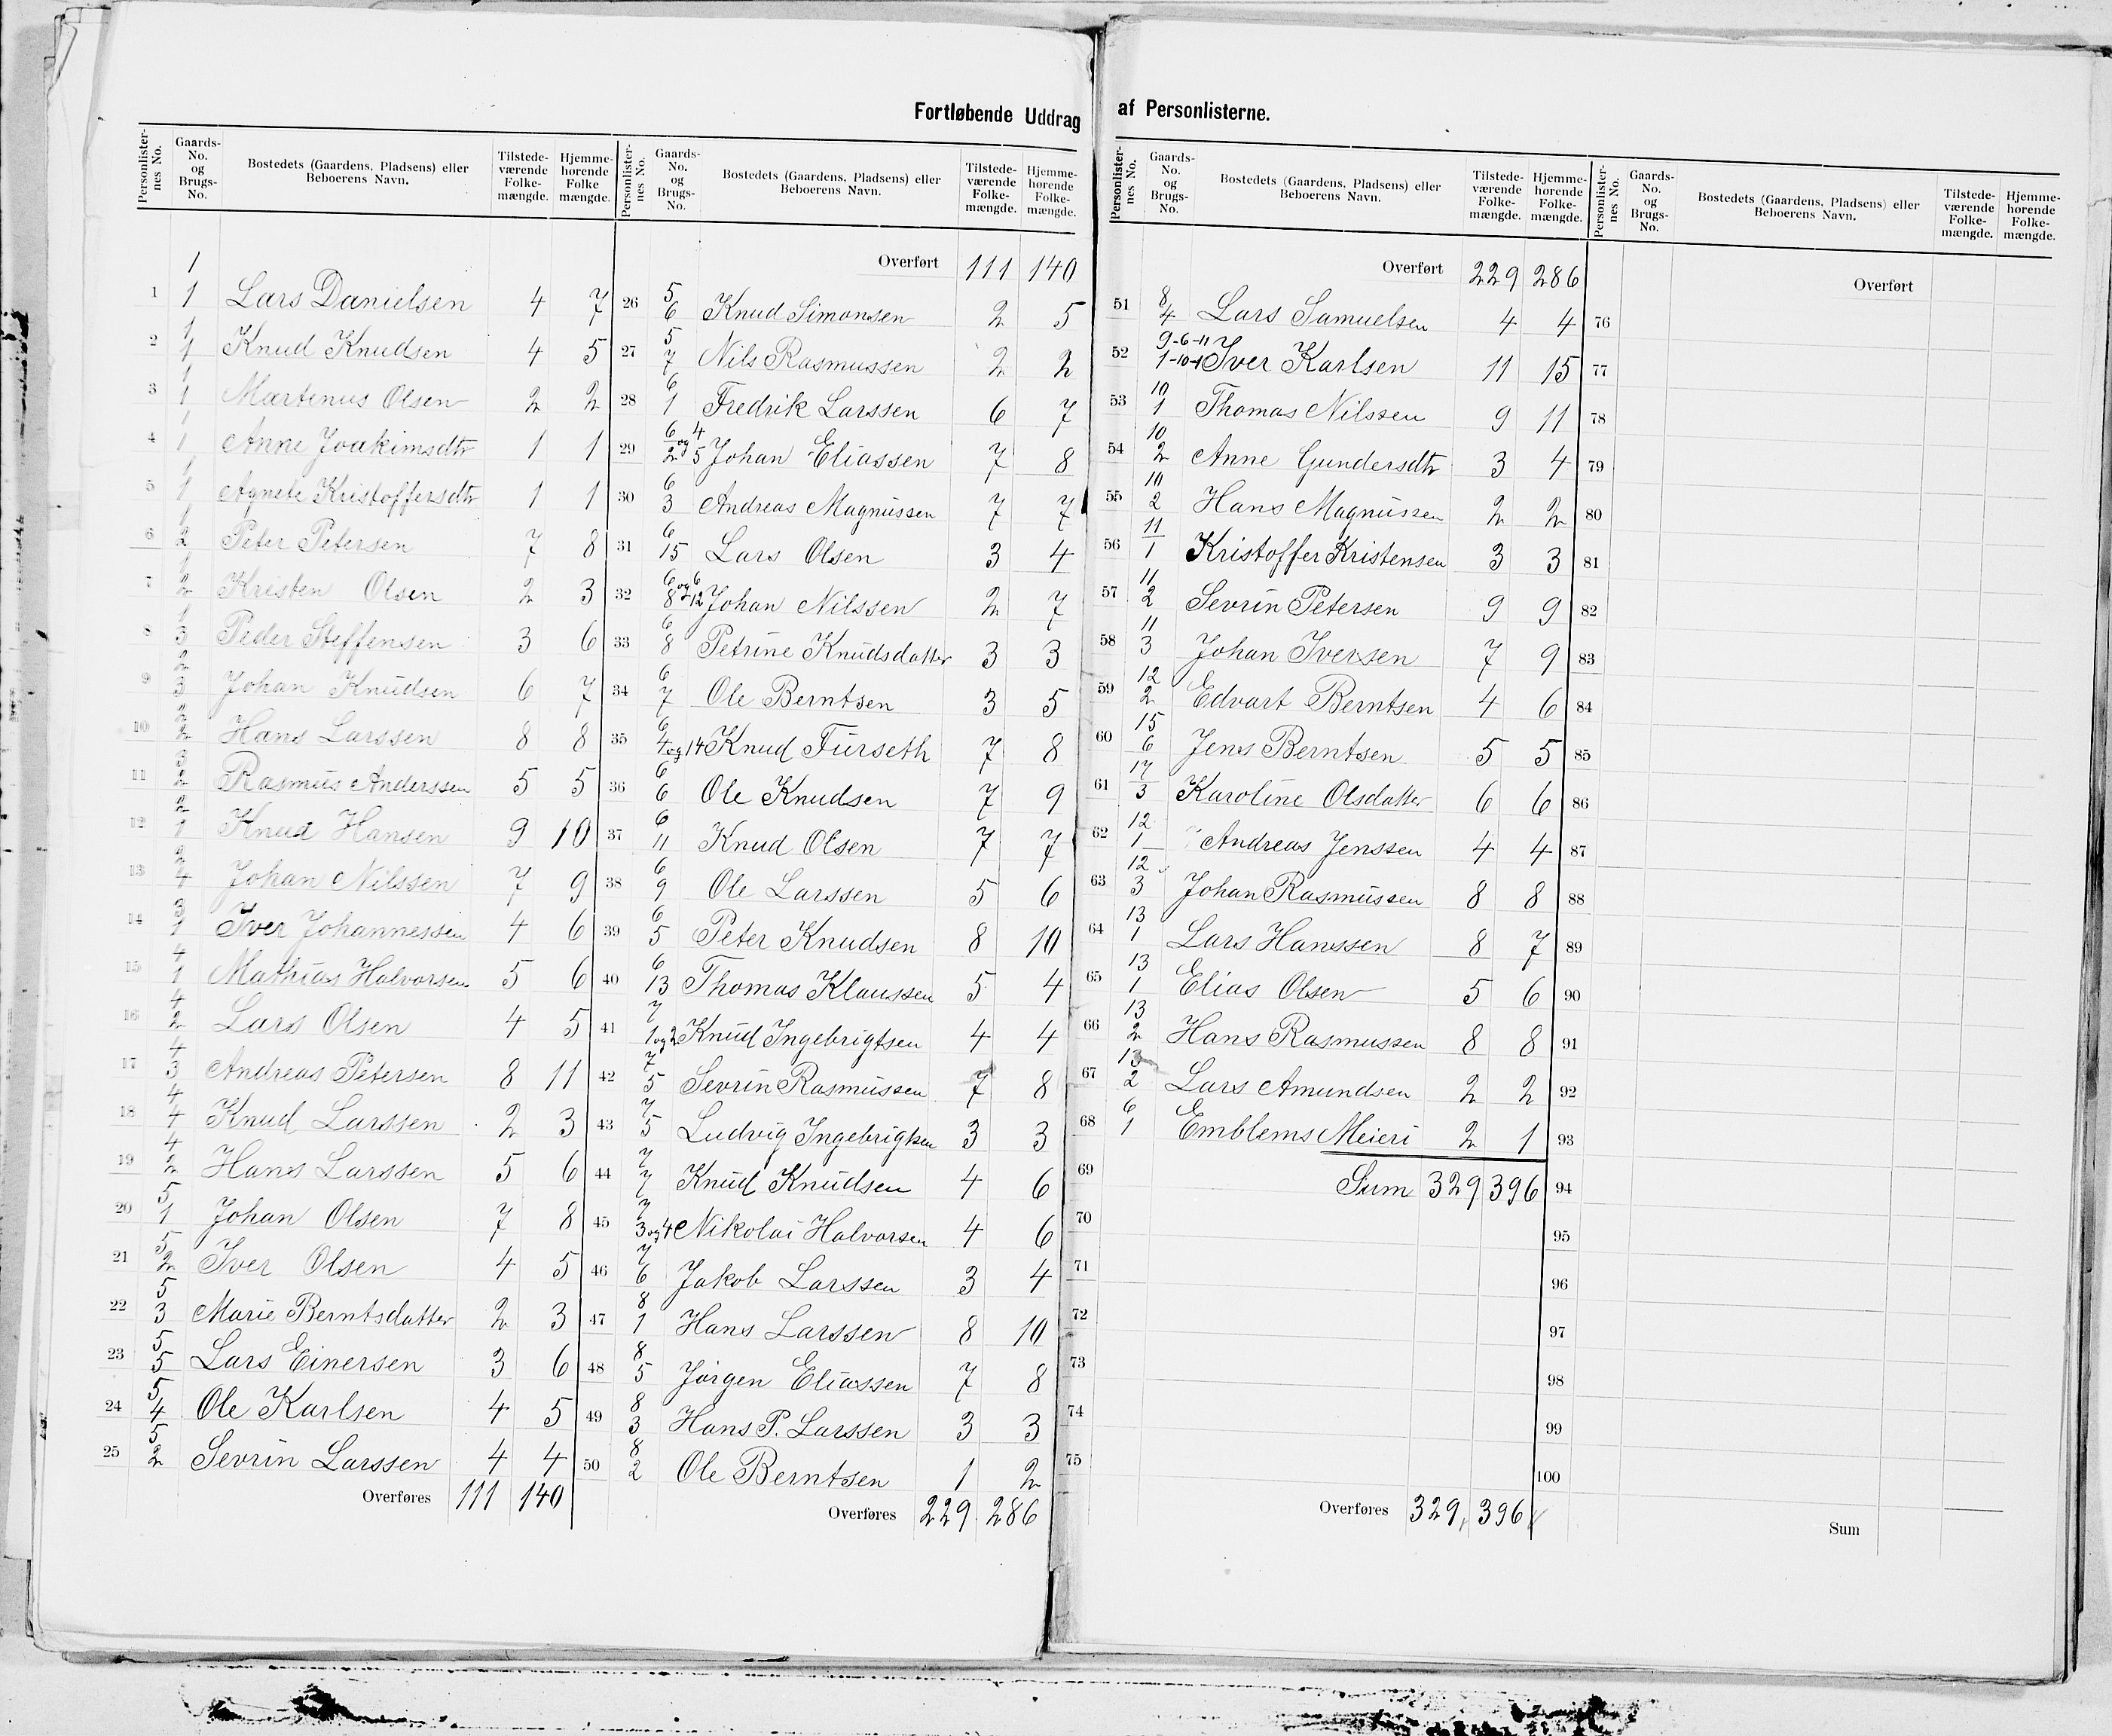 Fortløbende Uddrag af Personlisterne.
Personlisternes No. Gaards-No. og Brugs-No. Bostedets (Gaardens, Pladsens) eller Beboerens Navn. Tilstedeværende Folkemængde. Hjemmehørende Folkemængde.
1 1/1 Lars Danielsen 4 7
2 1/1 Knud Knudsen 4 5
3 1/1 Martinus Olsen 2 2
4 1/1 Anne Joakimsdtr 1 1
5 1/1 Agnete Kristoffersdtr 1 1
6 1/2 Peter Petersen 7 8
7 1/2 Kristen Olsen 2 3
8 1/3 Peder Steffensen 3 6
9 2/3 Johan Knudsen 6 7
10 2/2 Hans Larssen 8 8
11 3/2 Rasmus Anderssen 5 5
12 2/1 Knud Hansen 9 10
13 2/4 Johan Nilssen 7 9
14 3/1 Iver Johannessen 4 6
15 4/1 Mathias Halvorsen 5 6
16 4/2 Lars Olsen 4 5
17 4/3 Andreas Petersen 8 11
18 4/4 Knud Larssen 2 3
19 4/2 Hans Larssen 5 6
20 5/1 Johan Olsen 7 8
21 5/2 Iver Olsen 4 5
22 5/3 Marie Berntsdatter 2 3
23 5/5 Lars Einersen 3 6
24 5/4 Ole Karlsen 4 5
25 5/2 Sevrin Larssen 4 4
Overføres 111 140
Personlisternes No. Gaards-No. og Brugs-No. Bostedets (Gaardens, Pladsens) eller Beboerens Navn. Tilstedeværende Folkemængde. Hjemmehørende Folkemængde.
Overført 111 140
26 5/6 Knud Simonsen 2 5
27 5/7 Nils Rasmussen 2 2
28 6/1 Fredrik Larssen 6 7
29 6/2 og 4/5 Johan Eliassen 7 8
30 6/3 Andreas Magnussen 7 7
31 6/15 Lars Olsen 3 4
32 6/8 og 6/12 Johan Nilssen 2 7
33 6/8 Petrine Knudsdatter 3 3
34 6/7 Ole Berntsen 3 5
35 6/4 og 14 Knud Furseth 7 8
36 6/6 Ole Knudsen 7 9
37 6/11 Knud Olsen 7 7
38 6/9 Ole Larssen 5 6
39 6/5 Peter Knudsen 8 10
40 6/13 Thomas Klaussen 5 4
41 7/1 og 2 Knud Ingebrigtsen 4 4
42 7/5 Sevrin Rasmussen 7 8
43 7/5 Ludvig Ingebrigtsen 3 3
44 7/7 Knud Knudsen 4 6
45 7/3 og 4 Nikolai Halvorsen 4 6
46 7/6 Jakob Larssen 3 4
47 8/1 Hans Larssen 8 10
48 8/5 Jørgen Eliassen 7 8
49 8/3 Hans P. Larssen 3 3
50 8/2 Ole Berntsen 1 2
Overføres 229 286
Personlisternes No. Gaards-No. og Brugs-No. Bostedets (Gaardens, Pladsens) eller Beboerens Navn. Tilstedeværende Folkemængde. Hjemmehørende Folkemængde.
Overført 229 286
51 8/4 Lars Samuelsen 4 4
52 9-6-11/1-10-1 Iver Karlsen 11 15
53 10/1 Thomas Nilssen 9 11
54 10/2 Anne Gundersdtr 3 4
55 10/2 Hans Magnussen 2 2
56 11/1 Kristoffer Kristensen 3 3
57 11/2 Sevrin Petersen 9 9
58 11/3 Johan Iversen 7 9
59 12/2 Edvart Berntsen 4 6
60 15/6 Jens Berntsen 5 5
61 17/3 Karoline Olsdatter 6 6
62 12/1 Andreas Jenssen 4 4
63 12/3 Johan Rasmussen 8 8
64 13/1 Lars Hanssen 8 7
65 13/1 Elias Olsen 5 6
66 13/2 Hans Rasmussen 8 8
67 13/2 Lars Amundsen 2 2
68 6/1 Emblems Meieri 2 1
69 Sum 329 396
70
71
72
73
74
75
Overføres 329, 396
Personlisternes No. Gaards-No. og Brugs-No. Bostedets (Gaardens, Pladsens) eller Beboerens Navn. Tilstedeværende Folkemængde. Hjemmehørende Folkemængde.
Overført
76
77
78
79
80
81
82
83
84
85
86
87
88
89
90
91
92
93
94
95
96
97
98
99
100
Sum